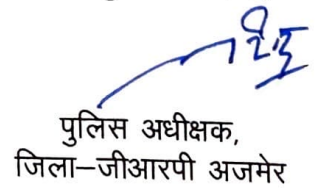 पुलिस अधीक्षक,
जिला–जीआरपी अजमेर